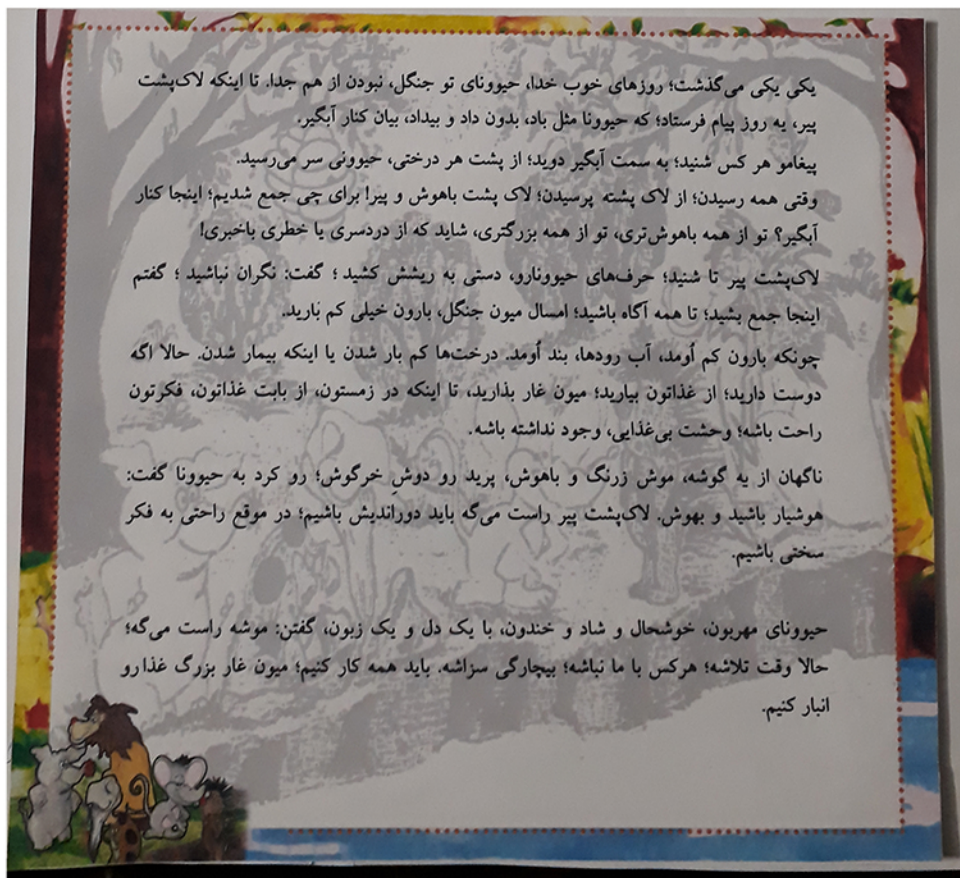 یکی یکی می‌گذشت؛ روزهای خوب خدا، حیوونای تو جنگل، نبودن از هم جدا. تا اینکه لاک‌پشت
پیر، یه روز پیام فرستاد؛ که حیوونا مثل باد، بدون داد و بیداد، بیان کنار آبگیر.
پیغامو هر کس شنید؛ به سمت آبگیر دوید؛ از پشت هر درختی، حیوونی سر می‌رسید.
وقتی همه رسیدن؛ از لاک پشته پرسیدن؛ لاک پشت باهوش و پیر! برای چی جمع شدیم؛ اینجا کنار
آبگیر؟ تو از همه باهوش‌تری، تو از همه بزرگتری، شاید که از دردسری یا خطری باخبری!
لاک‌پشت پیر تا شنید؛ حرف‌های حیوونارو، دستی به ریشش کشید ؛ گفت: نگران نباشید ؛ گفتم
اینجا جمع بشید؛ تا همه آگاه باشید؛ امسال میون جنگل، بارون خیلی کم بَارید.
چونکه بارون کم اُومد، آب رودها، بند اُومد. درخت‌ها کم بار شدن یا اینکه بیمار شدن. حالا اگه
دوست دارید؛ از غذاتون بیارید؛ میون غار بذارید، تا اینکه در زمستون، از بابت غذاتون، فکرتون
راحت باشه؛ وحشت بی‌غذایی، وجود نداشته باشه.
ناگهان از یه گوشه، موش زرنگ و باهوش، پرید رو دوشِ خرگوش؛ رو کرد به حیوونا گفت:
هوشیار باشید و بهوش. لاک‌پشت پیر راست می‌گه باید دوراندیش باشیم؛ در موقع راحتی به فکر
سختی باشیم.
حیوونای مهربون، خوشحال و شاد و خندون، با یک دل و یک زبون، گفتن: موشه راست می‌گه؛
حالا وقت تلاشه؛ هرکس با ما نباشه؛ بیچارگی سزاشه. باید همه کار کنیم؛ میون غار بزرگ غذارو
انبار کنیم.